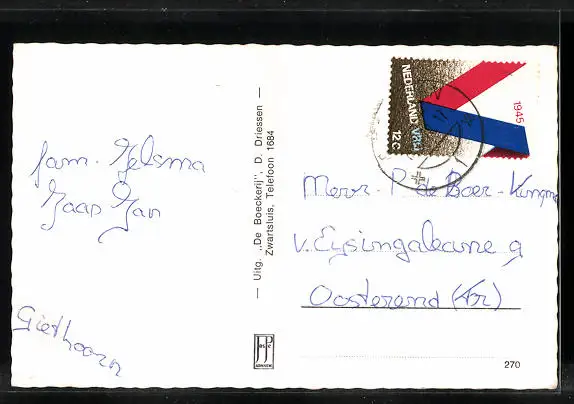 fam. Jelsma
Jaap Jan
Giethoorn
— Uitg. „De Boeckerij", D. Driessen —
Zwartsluis, Telefoon 1684
JosPe
ARNHEM
NEDERLAND
12 C
1945
Mevr. P. de Boer - Kingma
v. Eysingaleane 9
Oosterend (Fr)
270